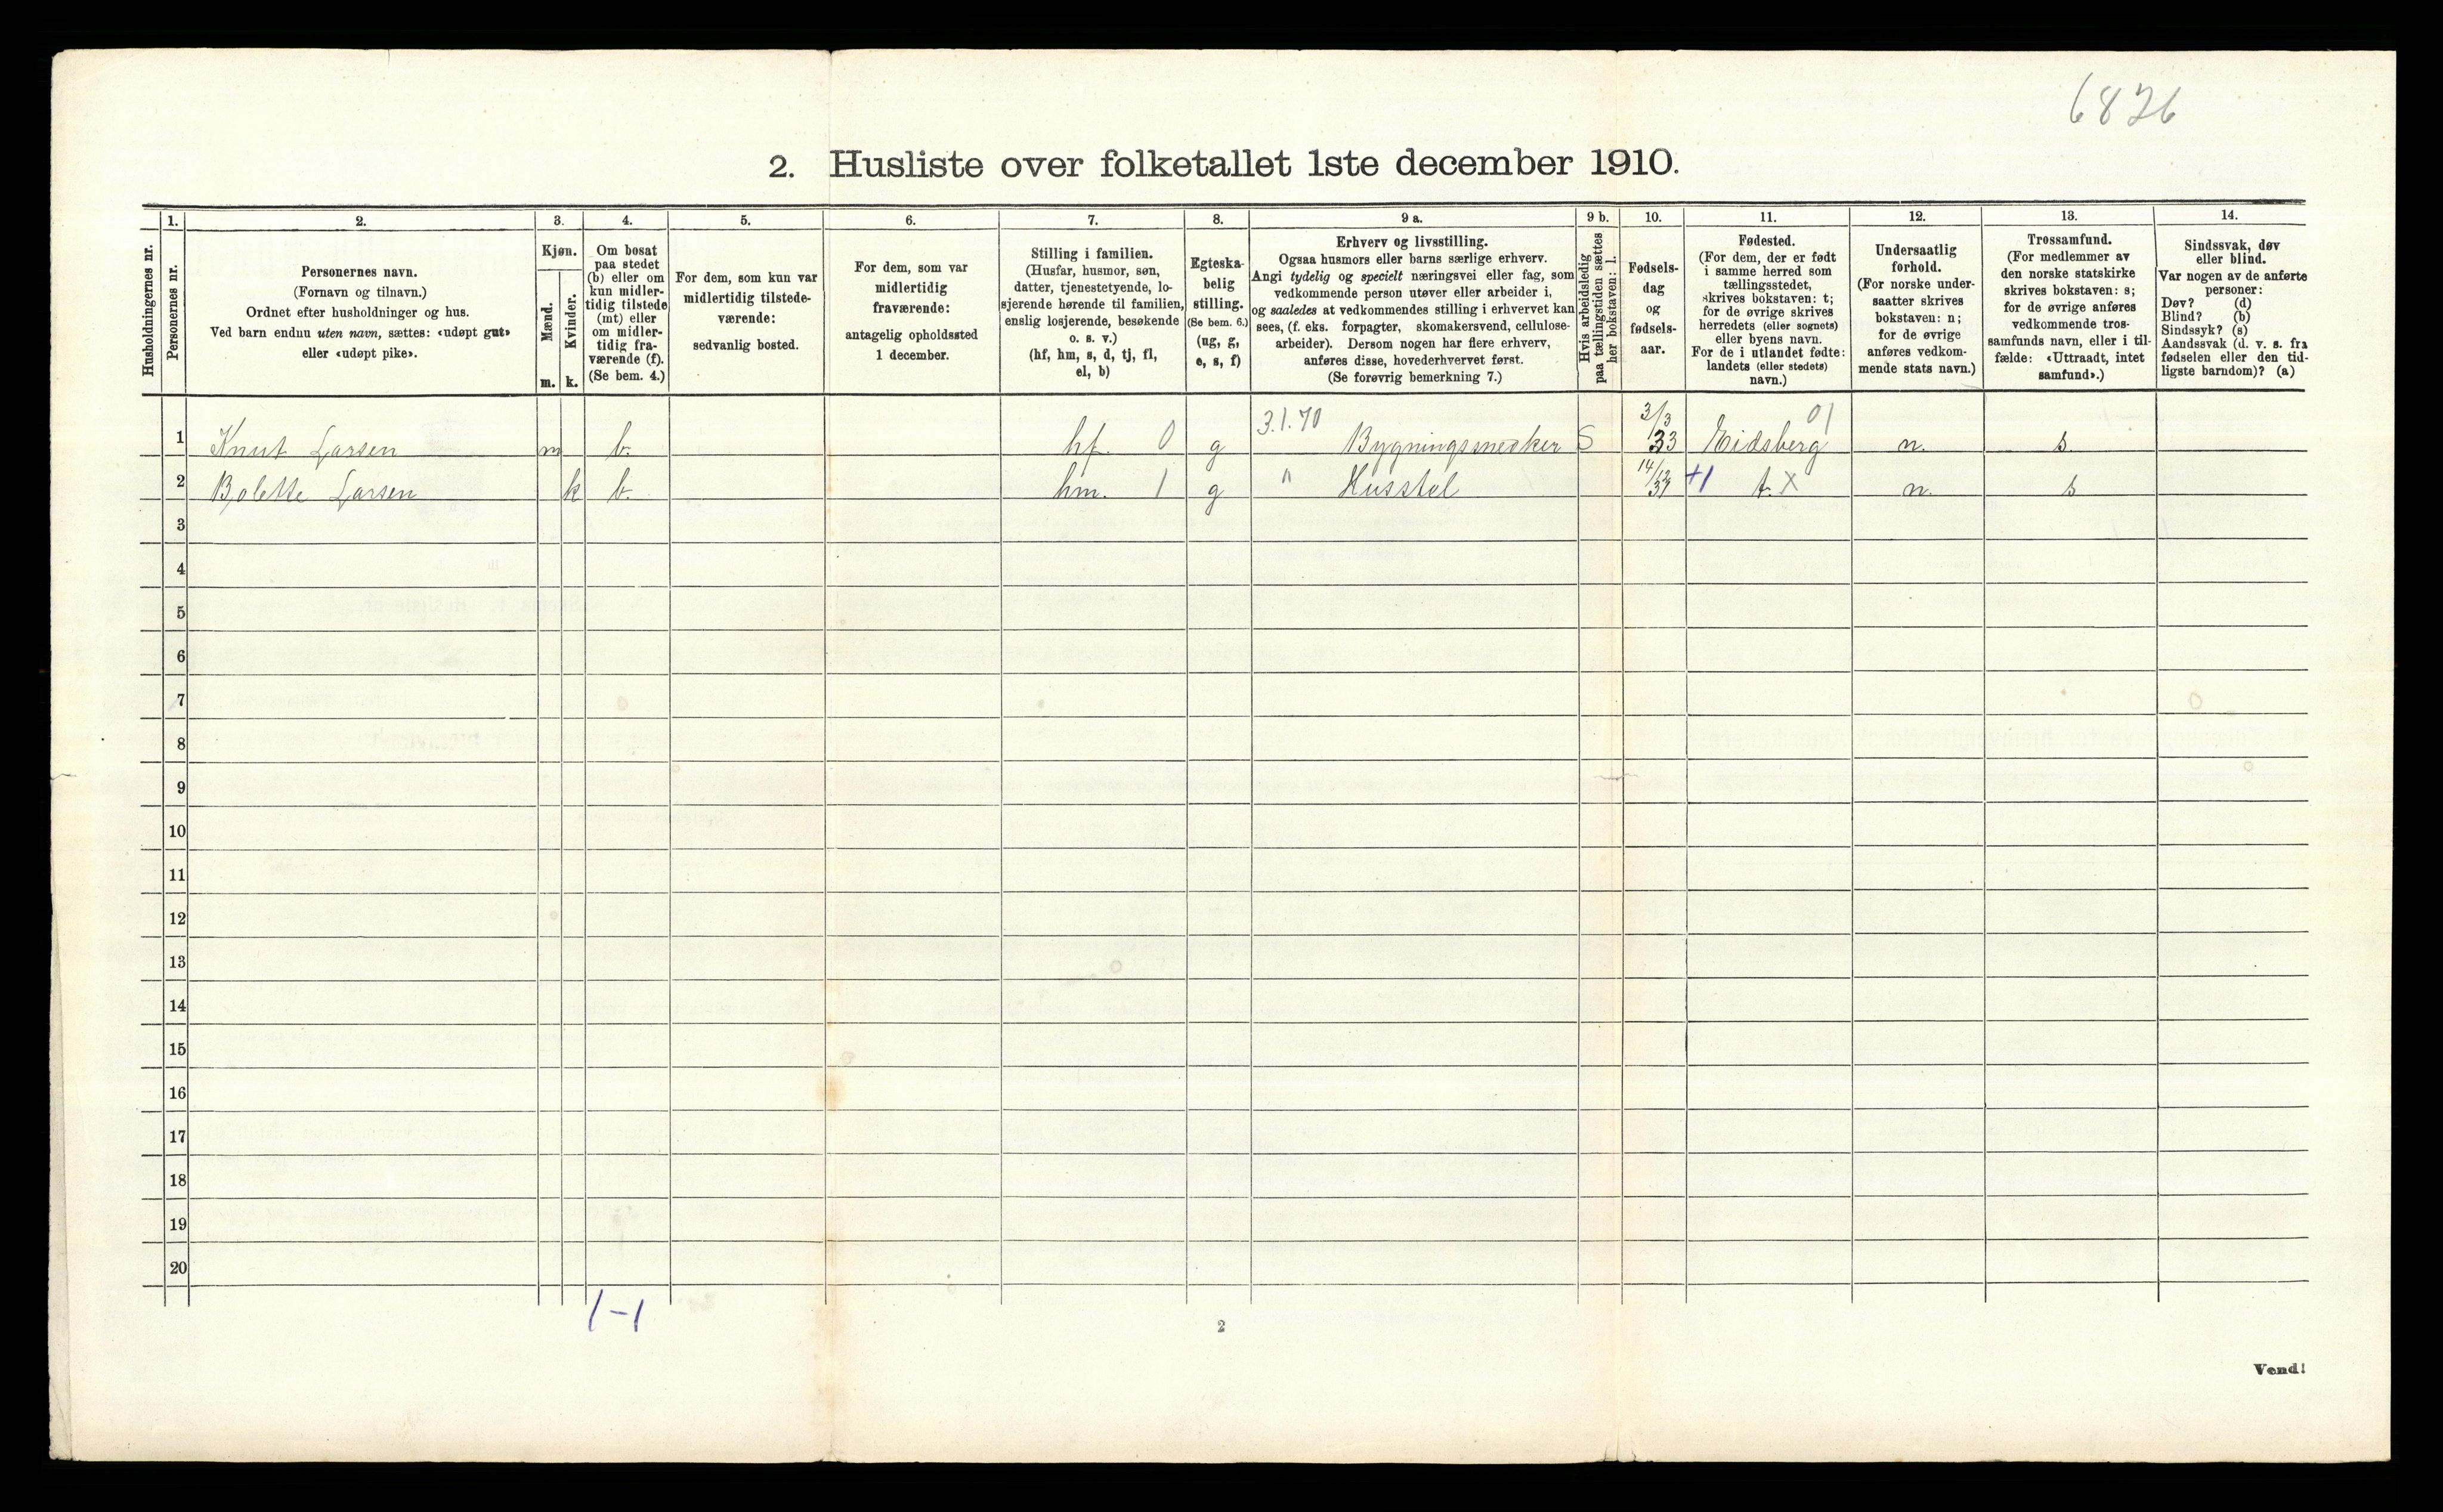 6826
2. Husliste over folketallet 1ste december 1910.
Husholdningernes nr.
1.
Personernes nr.
2.
Personernes navn.
(Fornavn og tilnavn.)
Ordnet efter husholdninger og hus.
Ved barn endnu uten navn, sættes: «udøpt gut»
eller «udøpt pike».
3.
Kjøn.
Mænd.
Kvinder.
m. k.
4.
Om bosat
paa stedet
(b) eller om
kun midler-
tidig tilstede
(mt) eller
om midler-
tidig fra-
værende (f).
(Se bem. 4.)
5.
For dem, som kun var
midlertidig tilstede-
værende:
sedvanlig bosted.
6.
For dem, som var
midlertidig
fraværende:
antagelig opholdssted
1 december.
7.
Stilling i familien.
(Husfar, husmor, søn,
datter, tjenestetyende, lo-
sjerende hørende til familien,
enslig losjerende, besøkende
o. s. v.)
(hf, hm, s, d, tj, fl,
el, b)
8.
Egteska-
belig
stilling.
(Se bem. 6.)
(ug, g,
e, s, f)
9 a.
Erhverv og livsstilling.
Ogsaa husmors eller barns særlige erhverv.
Angi tydelig og specielt næringsvei eller fag, som
vedkommende person utøver eller arbeider i,
og saaledes at vedkommendes stilling i erhvervet kan
sees, (f. eks. forpagter, skomakersvend, cellulose-
arbeider). Dersom nogen har flere erhverv,
anføres disse, hovederhvervet først.
(Se forøvrig bemerkning 7.)
9 b.
Hvis arbeidsledig
paa tællingstiden sættes
her bokstaven: l.
10.
Fødsels-
dag
og
fødsels-
aar.
11.
Fødested.
(For dem, der er født
i samme herred som
tællingsstedet,
skrives bokstaven: t;
for de øvrige skrives
herredets (eller sognets)
eller byens navn.
For de i utlandet fødte:
landets (eller stedets)
navn.)
12.
Undersaatlig
forhold.
(For norske under-
saatter skrives
bokstaven: n;
for de øvrige
anføres vedkom-
mende stats navn.)
13.
Trossamfund.
(For medlemmer av
den norske statskirke
skrives bokstaven: s;
for de øvrige anføres
vedkommende tros-
samfunds navn, eller i til-
fælde: «Uttraadt, intet
samfund».)
14.
Sindssvak, døv
eller blind.
Var nogen av de anførte
personer:
Døv? (d)
Blind? (b)
Sindssyk? (s)
Aandssvak (d. v. s. fra
fødselen eller den tid-
ligste barndom)? (a)
3.1.70 3/3 01
1 Knut Larsen m b. hf. 0 g Bygningssnedker S 33 Eidsberg n. s.
14/12
2 Bolette Larsen k b. hm. 1 g " Husstel 37 +1 t. X n. s
3
4
5
6
7
8
9
10
11
12
13
14
15
16
17
18
19
20
1-1
2
Vend!